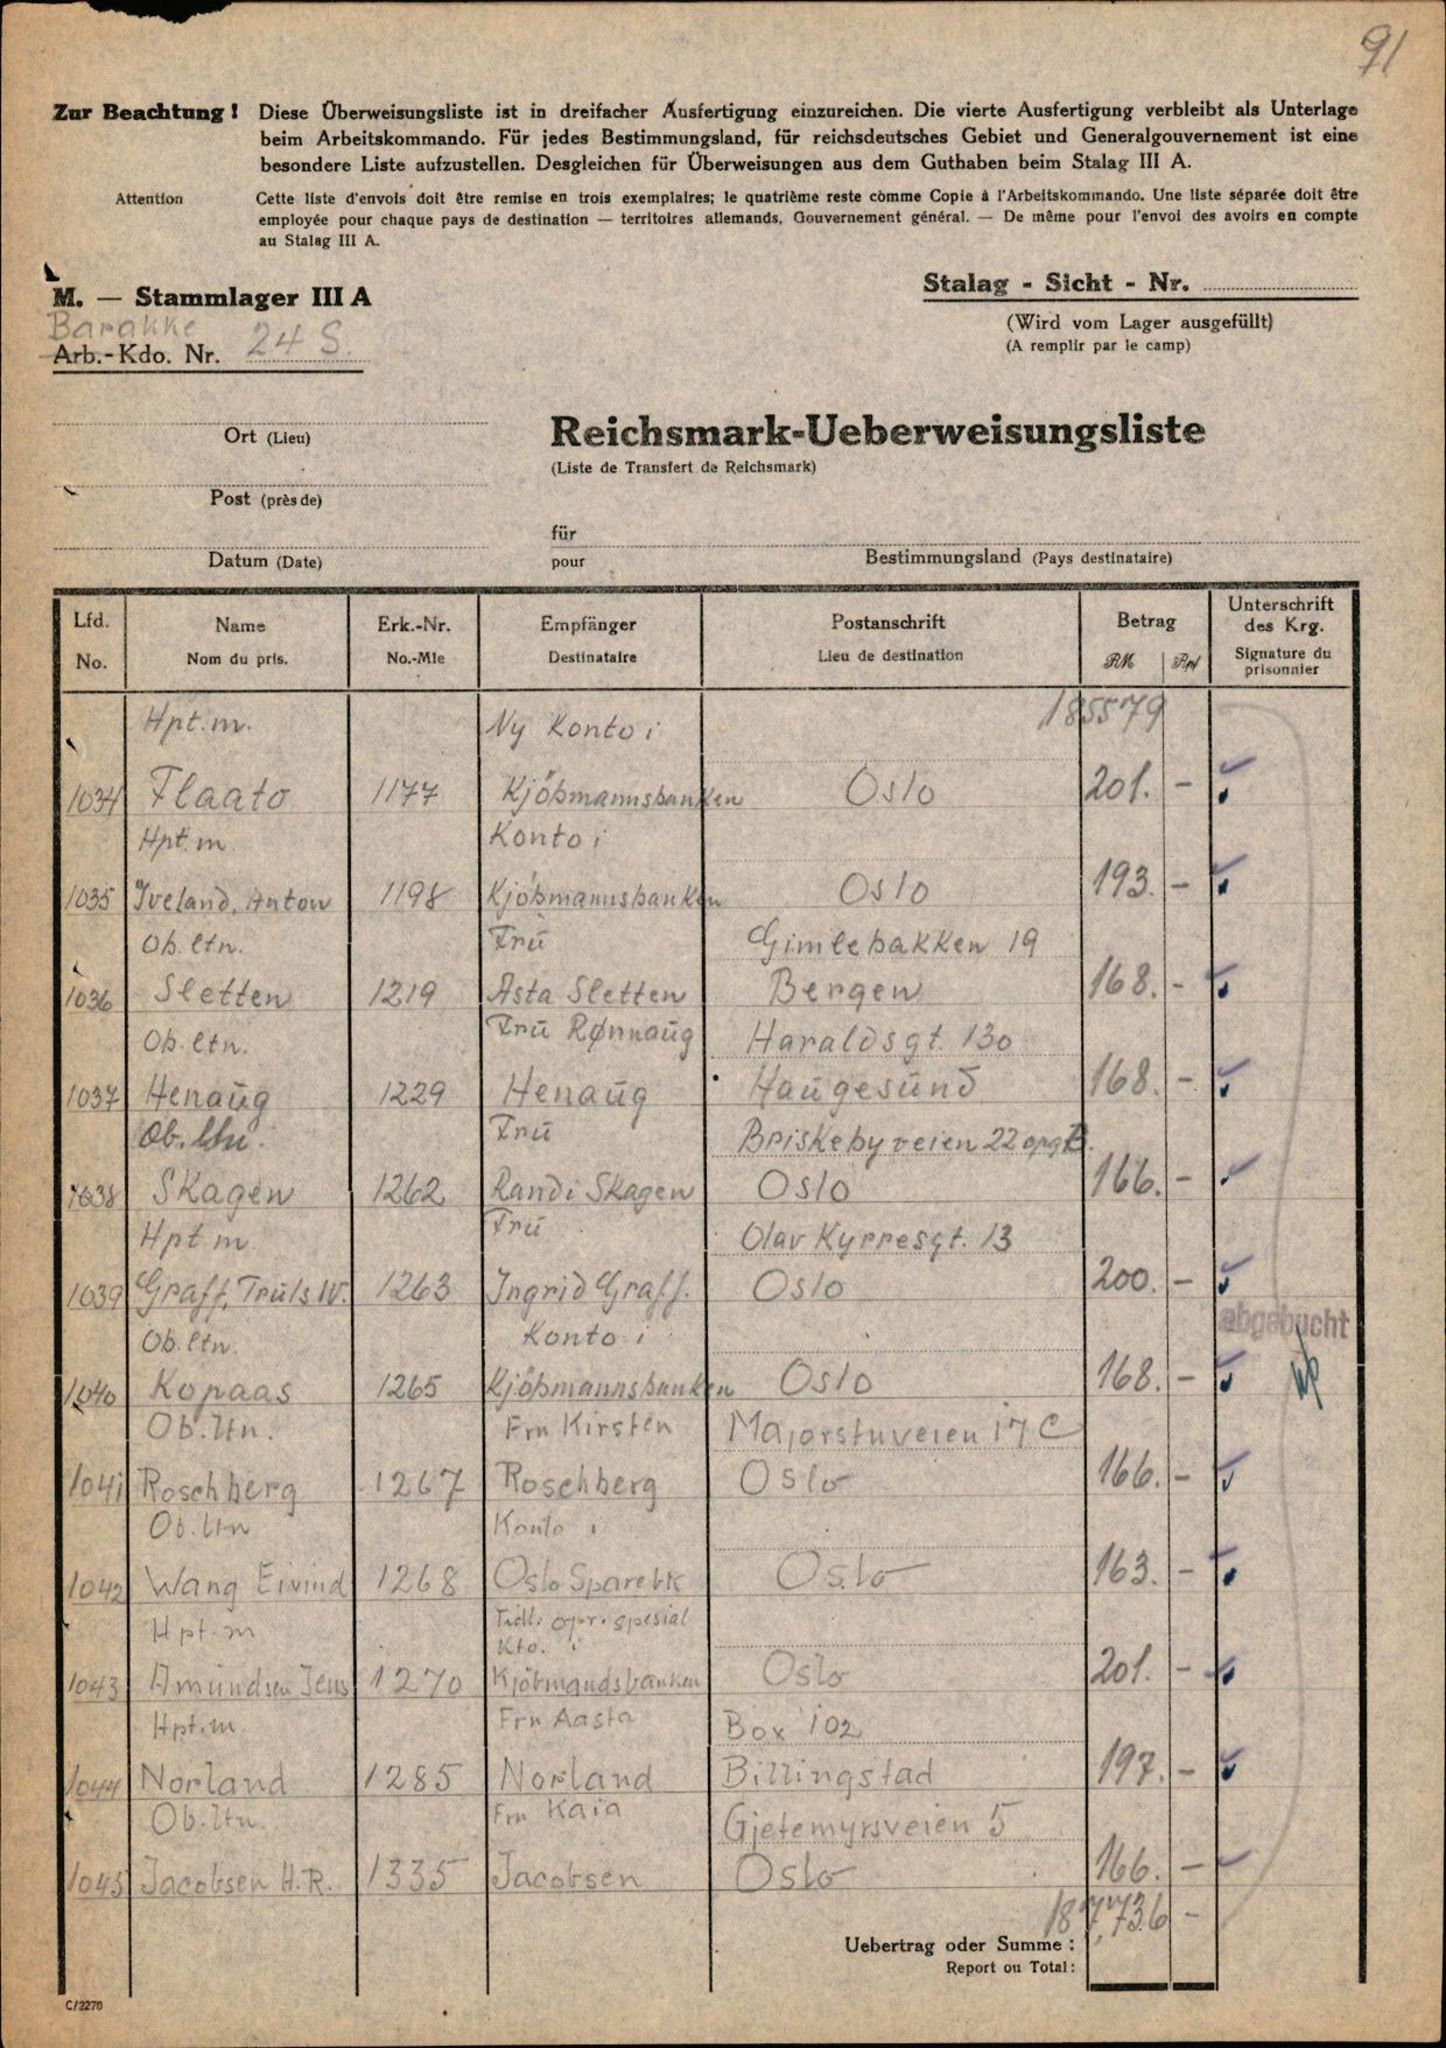 91
Zur Beachtung! Diese Überweisungsliste ist in dreifacher Ausfertigung einzureichen. Die vierte Ausfertigung verbleibt als Unterlage
beim Arbeitskommando. Für jedes Bestimmungsland, für reichsdeutsches Gebiet und Generalgouvernement ist eine
besondere Liste aufzustellen. Desgleichen für Überweisungen aus dem Guthaben beim Stalag III A.
Attention Cette liste d'envois doit être remise en trois exemplaires; le quatrième reste comme Copie à l'Arbeitskommando. Une liste séparée doit être
employée pour chaque pays de destination — territoires allemands, Gouvernement général. — De même pour l'envoi des avoirs en compte
au Stalag III A.
M. — Stammlager III A
Barakke
Arb.-Kdo. Nr. 24 S.
Stalag - Sicht - Nr.
(Wird vom Lager ausgefüllt)
(A remplir par le camp)
Ort (Lieu)
Post (près de)
Datum (Date)
Reichsmark-Ueberweisungsliste
(Liste de Transfert de Reichsmark)
für
pour
Bestimmungsland (Pays destinataire)
Lfd. Name Erk.-Nr. Empfänger Postanschrift Betrag Unterschrift des Krg.
No. Nom du pris. No.-Mle Destinataire Lieu de destination RM Rpf Signature du prisonnier
Hpt.m. Ny Konto i 185579
1034 Flaato 1177 Kjöbmannsbanken Oslo 201. -
Hpt.m Konto i
1035 Iveland, Anton 1198 Kjöbmannsbanken Oslo 193. -
Ob.ltn. Frü Gimlebakken 19
1036 Sletten 1219 Asta Sletten Bergen 168. -
Ob.ltn. Frü Rønnaüg Haraldsgt. 130
1037 Henaüg 1229 Henaüg Haugesünd 168. -
Ob.ltn. Frü Briskebyveien 22 opg B.
1038 Skagen 1262 Randi Skagen Oslo 166. -
Hptm. Frü Olav Kyrresgt. 13
1039 Graff, Truls W. 1263 Ingrid Graff. Oslo 200. -
abgebucht
Ob.ltn. Konto i
1040 Kopaas 1265 Kjöbmannsbanken Oslo 168. -
Ob.ltn. Fru Kirsten Majorstuveien 17 C
1041 Roschberg 1267 Roschberg Oslo 166. -
Ob.ltn Konto i
1042 Wang Eivind 1268 Oslo Sparebk Oslo 163. -
Hpt.m Tidl. opr. spesial
Kto. i
1043 Amundsen Jens 1270 Kjöbmandsbanken Oslo 201. -
Hpt.m. Fru Aasta Box 102
1044 Norland 1285 Norland Billingstad 197. -
Ob.ltn. Fru Kaia Gjetemyrsveien 5
1045 Jacobsen H.R. 1335 Jacobsen Oslo 166. -
187,736 -
Uebertrag oder Summe :
Report ou Total :
C/2270